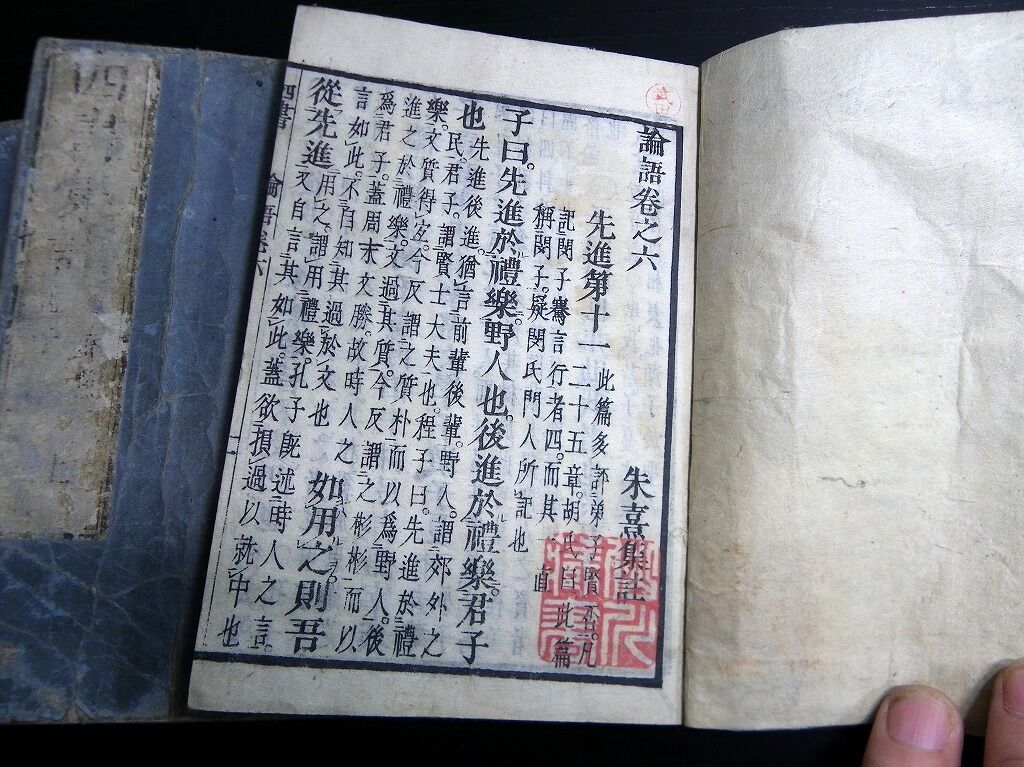 論語卷之六
朱熹集註
先進第十一
此篇多評弟子賢否。凡
二十五章。胡氏曰。此篇
記閔子騫言行者四。而其一直
稱閔子。疑閔氏門人所記也
子曰。先進於禮樂野人也。後進於禮樂。君子
也
先進後進。猶言前輩後輩。野人。謂郊外之
民。君子。謂賢士大夫也。程子曰。先進於禮
樂。文質得宜。今反謂之質朴而以爲野人。後
進之於禮樂。文過其質。今反謂之彬彬而以
爲君子。蓋周末文勝。故時人之
言如此。不自知其過於文也
如用之則吾
從先進
用之。謂用禮樂。孔子既述時人之言。
又自言其如此。蓋欲損過以就中也
四書
論語卷六